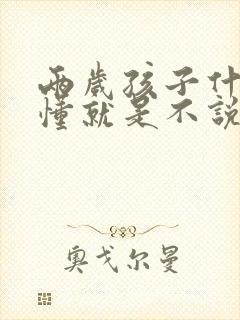 兩歲孩子什
懂就是不說
奧戈尔曼